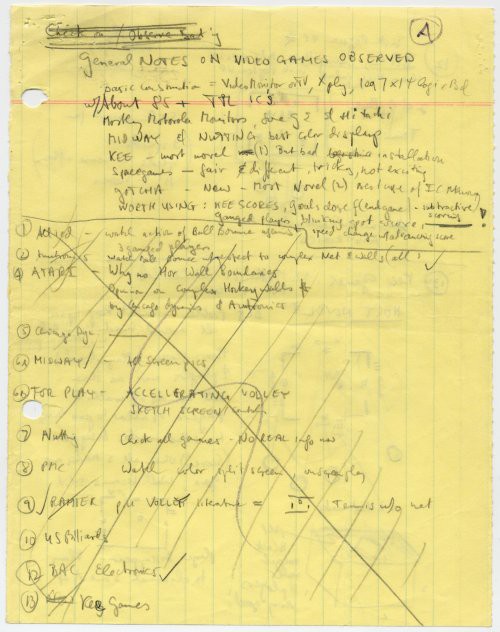 A
Check on / Observe
General NOTES ON VIDEO GAMES OBSERVED
basic construction = Video Monitor or TV, X ply, 1 or 2 7 x 14 Logic Bd
w/About 85 + TTL ICS
Mostly Motorola Monitors, some g 2 Hitachi
MIDWAY & NUTTING best color displays
KEE - most novel (1) But bad installation
Spacegames - fair & different, tricky, not exciting
GOTCHA - New - Most Novel (2) Nest use of IC Memory
WORTH USING: KEE SCORES, Goals close f (endgame) - subtractive scoring!
ganged players blinking spot score,
speed change w/advancing score
① Allied - watch action of Ball Bounce against
ganged players
② watch ball bounce w/respect to complex Net & Walls (all) ✓
④ ATARI - Why no Hor Wall boundaries
Opinion on complex Hockey walls
by Chicago dynamics & Amutronics
⑤ Chicago Dyn -
⑥A MIDWAY - screen pics
⑥B FOR PLAY - ACCELLERATING VOLLEY
SKETCH SCREEN
⑦ Nutting Check all games - NO REAL info now
⑧ PMC Watch color split screen,
⑨ ✓ RAMTEK pill VOLLEY literature = Tennis w/o net
⑩ US Billiards
⑫ BAC Electronics ✓
⑬ Kee Games